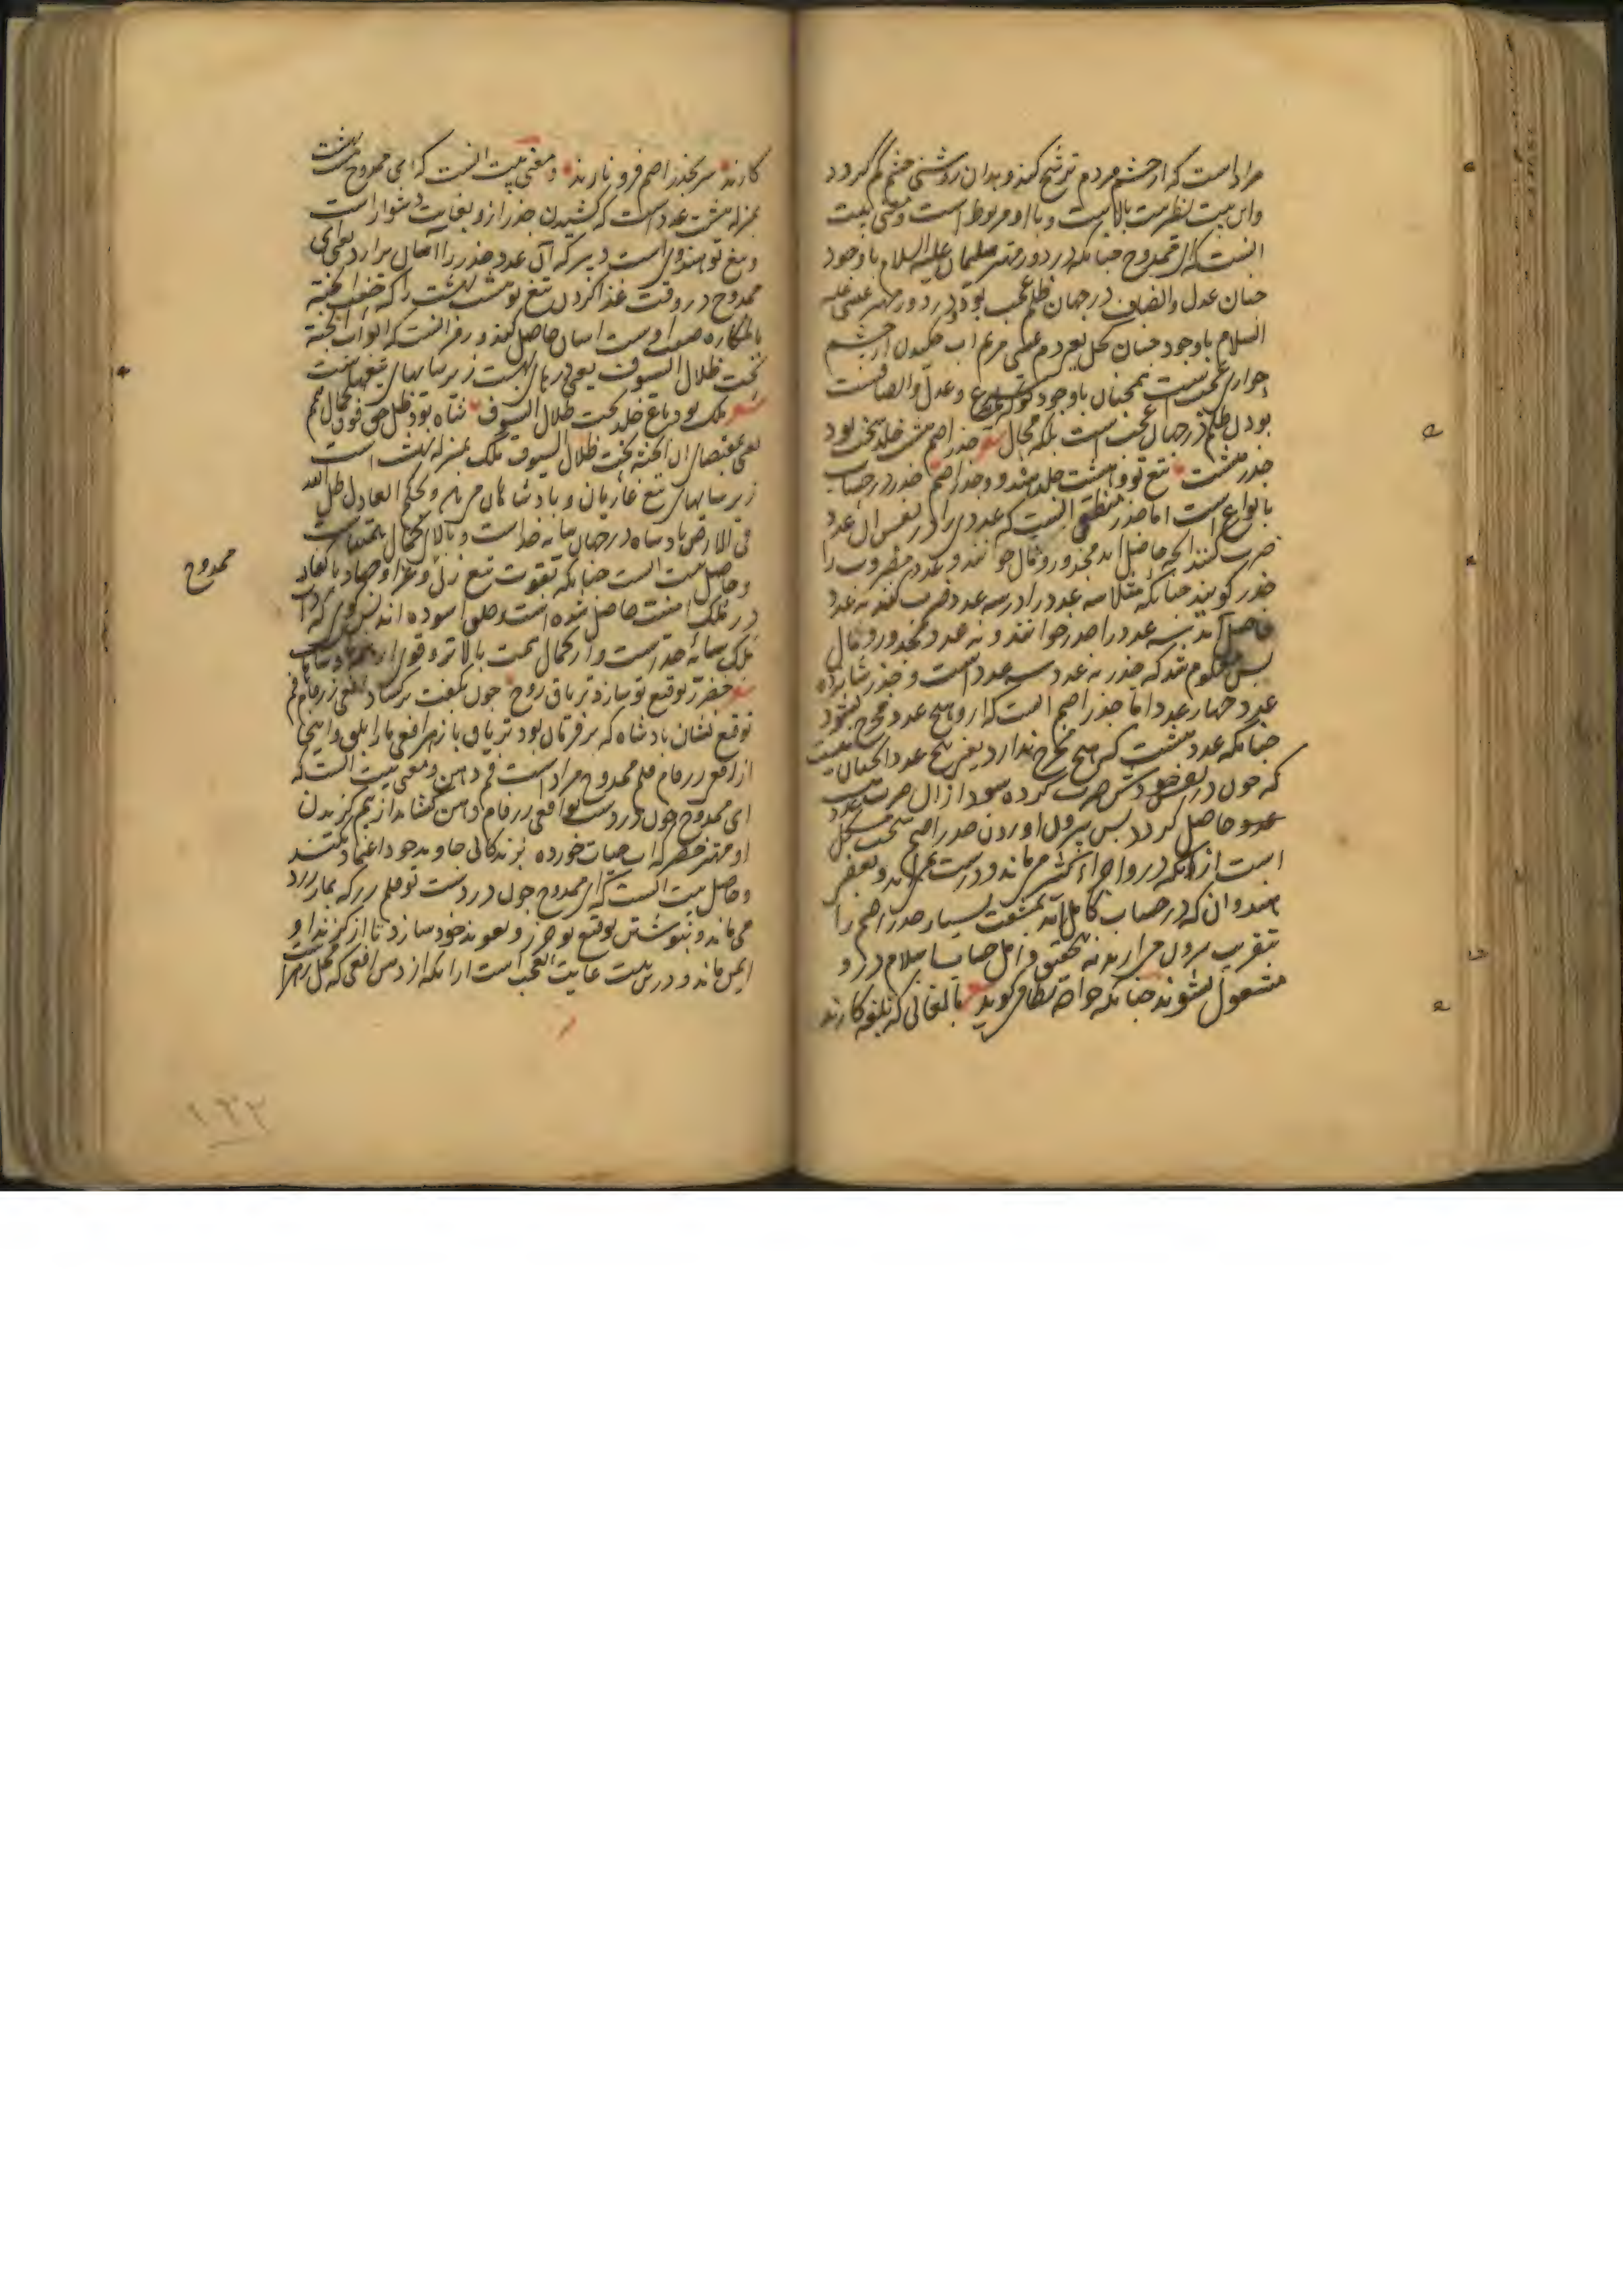 مراد است که از چشم مردم ترشح کند و بدان روشنی چشم کم گردد
و این بیت نظر بیت بالاست و با او مربوط است و معنی بیت
انست که ای ممدوح چنانکه در دور مهتر سلیمان علیه السلام با وجود
چنان عدل و انصاف در جهان ظلم عجب بود و در دور مهتر عیسی علیه
السلام با وجود چنان کحل بقدم عیسی مریم اب چکیدن از چشم
حواری عجبست همچنان با وجود تو و عدل و انصافت
بودن ظلم در جهان عجب است بلکه محال شعر جذر اصم هشت خلد تحت بود
جذر هشت تیغ تو و هشت خلد هند و و جذر اصم جذر در حساب
بانواع است اما جذر منطق انست که عددی را در نفس ان عدد
ضرب کنند انچه حاصل اید مجذور و مال خوانند و عدد مضروب را
جذر گویند چنانکه مثلا سه عدد را در سه عدد ضرب کنند نه عدد
حاصل آید سه عدد را جذر خوانند و نه عدد مجذور و مال
پس معلوم شد که جذر نه عدد سه عدد است و جذر شانزده
عدد چهار عدد اما جذر اصم انست که از و هیچ عدد مخرج نشود
چنانکه عدد هشت که هیچ مخرج ندارد یعنی هیچ عدد انچنان نیست
که چون در نفس خودش ضرب کرده شود از ان ضرب هشت عدد
حاصل گردد پس بیرون اوردن جذر اصم سخت مشکل
است از انکه درو اجزاء کثر می ماند و درست نمی آید و بعضی
هندوان که در حساب کامل اند بمشقت بسیار جذر اصم را
بتقریب بیرون می ارند نه تحقیق و اهل حساب اسلام درو
مشغول نشوند چنانکه خواجه نظامی گوید شعر بالغانی که بلغه کارند
کارند سر بجذر اصم فرو نارند و معنی بیت انست که ای ممدوح بهشت
بمنزله هشت عدد است که کشیدن جذر ازو بغایت دشوار است
و تیغ تو هندوی است دبیر که آن عدد جذر را آسان برارد یعنی ای
ممدوح در وقت غذا کردن تیغ تو هشت بهشت را که حفت الجنة
بالمکاره صفت اوست اسان حاصل کند و رمز انست که ابواب الجنة
تحت ظلال السیوف یعنی درهای بهشت زیر سایهای تیغهاست
شعر ملک بود باغ خلد تحت ظلال السیوف شاه بود ظل حق فوق کمال همم
یعنی بمقتضای ان الجنة تحت ظلال السیوف ملک بمنزله بهشت است
زیر سایهای تیغ غازیان و بادشاهان و بحکم العادل ظل الله
فی الارض بادشاه در جهان سایه خداست و بالای کمال همتهاست
و حاصل بیت انست چنانکه بقوت تیغ زنی و غزا و جهاد با کفار
در ملک امنیت حاصل شده است و خلق اسوده اند
ملک سایه حق است و از کمال همت بالاتر و
شعر خضر ز توقیع تو سازد تریاق روح چون بکفت بر کشاد افعی زرفام فم
توقیع نشان بادشاه که بر فرمان بود تریاق پا زهر افعی مار ابلق و اینجا
از افعی زرفام قلم ممدوح مراد است فم دهن و معنی بیت انست که
ای ممدوح چون در دست تو افعی زرفام دهن کشاید از بیم گزیدن
او مهتر خضر که اب حیات خورده بزندگانی جاوید خود اعتماد نکند
و حاصل بیت انست که ای ممدوح چون در دست تو قلم زر که بمار زرد
می ماند و بنوشتن توقیع تو حرز و تعویذ خود سازد تا از گزند او
ایمن ماند و درین بیت غایت العجب است ازانکه از دهن افعی که محل زهر
ممدوح
۱۹۲